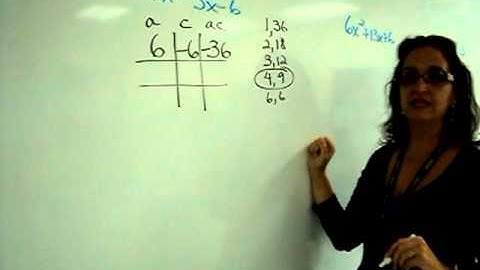 5x-6
a c ac
6 -6 -36
1,36
2,18
3,12
4,9
6,6
6x²+13x+6